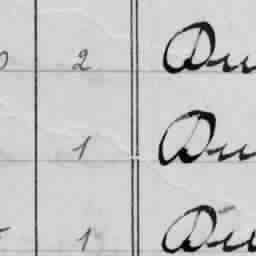 2 Du
1 Du
1 Du